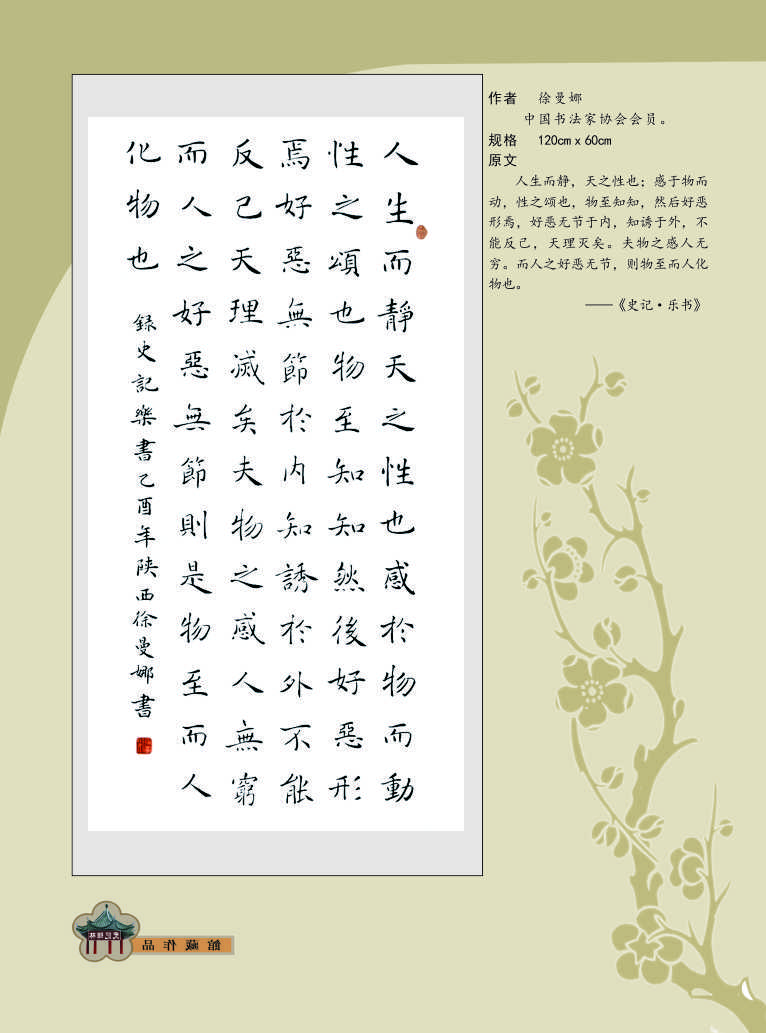 人生而靜天之性也感於物而動
性之頌也物至知知然後好惡形
焉好惡無節於内知誘於外不能
反己天理滅矣夫物之感人無窮
而人之好惡無節則是物至而人
化物也
録史記樂書乙酉年陕西徐曼娜書
作者 徐曼娜
中国书法家协会会员。
规格 120cm x 60cm
原文
人生而静，天之性也；感于物而
动，性之颂也，物至知知，然后好恶
形焉，好恶无节于内，知诱于外，不
能反己，天理灭矣。夫物之感人无
穷。而人之好恶无节，则物至而人化
物也。
——《史记·乐书》
館藏作品